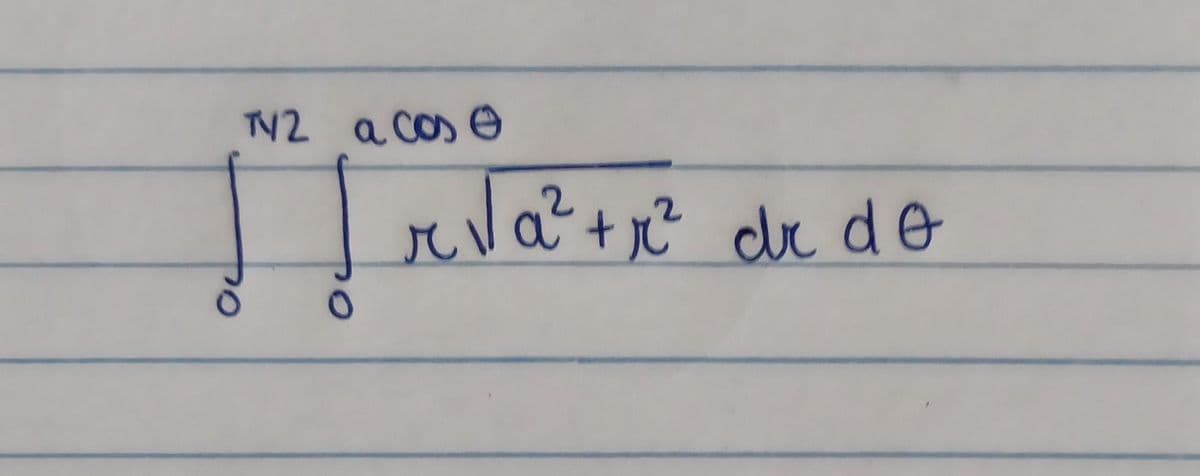 ∫₀^{π/2} ∫₀^{a cos θ} r√(a² + r²) dr dθ